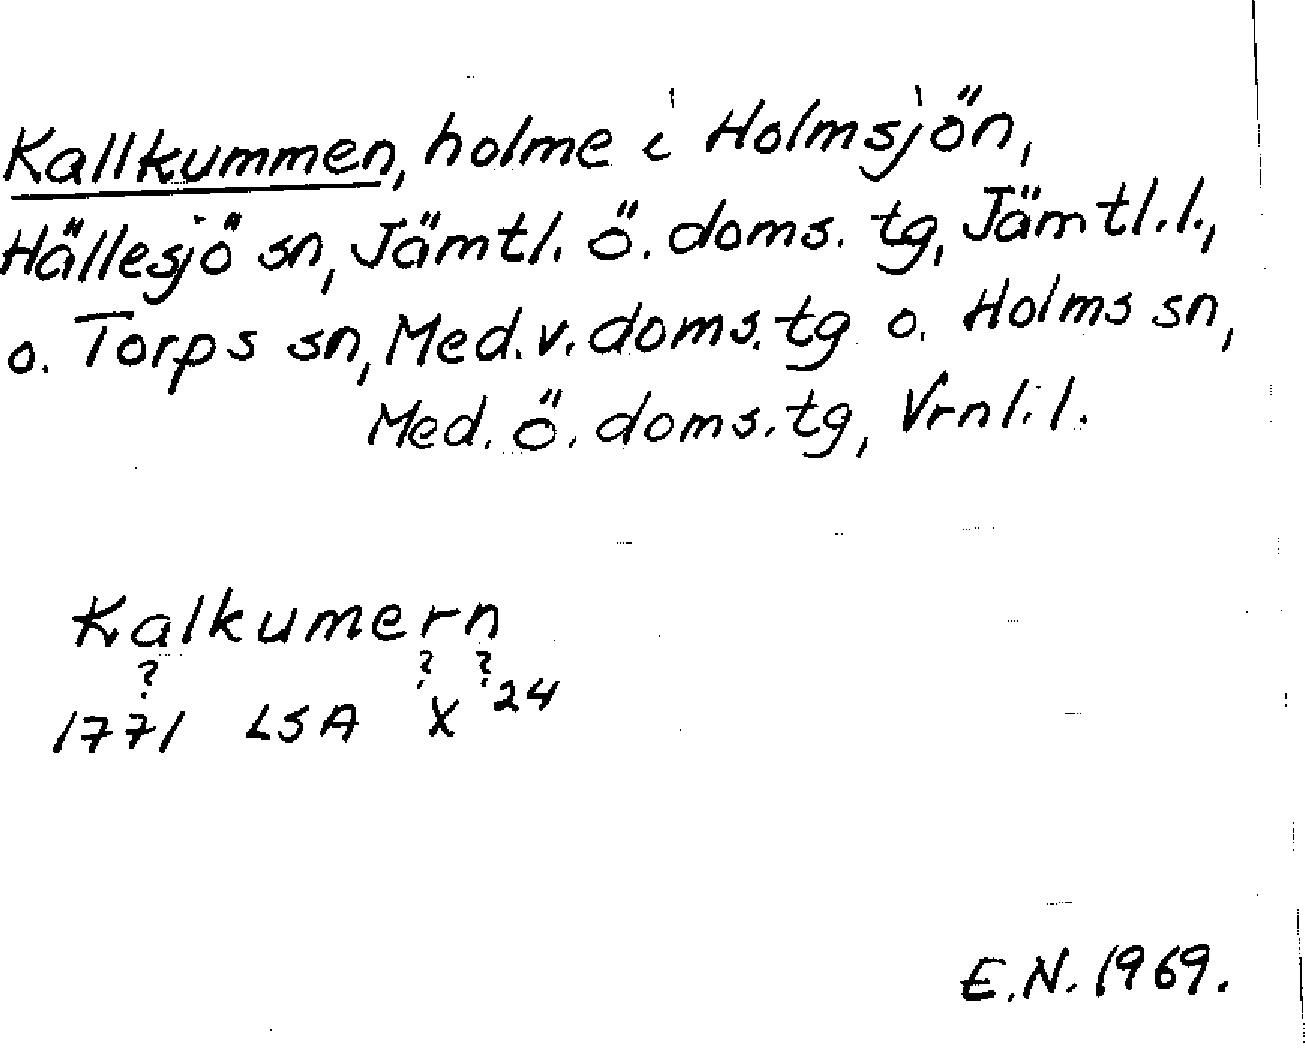 Kallkummen, holme i Holmsjön,
Hällesjö sn, Jämtl. ö. doms. tg, Jämtl. l.,
o. Torps sn, Med. v. doms. tg o. Holms sn,
Med. ö. doms. tg, Vrnl. l.
Kalkumern
? ? ?
1771 LSA X 24
E.N. 1969.